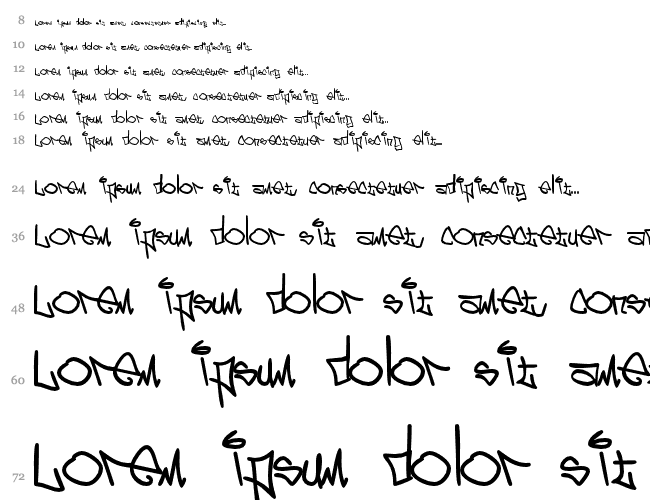 8 Lorem ipsum dolor sit amet consectetuer adipiscing elit...
10 Lorem ipsum dolor sit amet consectetuer adipiscing elit...
12 Lorem ipsum dolor sit amet consectetuer adipiscing elit...
14 Lorem ipsum dolor sit amet consectetuer adipiscing elit...
16 Lorem ipsum dolor sit amet consectetuer adipiscing elit...
18 Lorem ipsum dolor sit amet consectetuer adipiscing elit...
24 Lorem ipsum dolor sit amet consectetuer adipiscing elit...
36 Lorem ipsum dolor sit amet consectetuer a
48 Lorem ipsum dolor sit amet cons
60 Lorem ipsum dolor sit ame
72 Lorem ipsum dolor sit